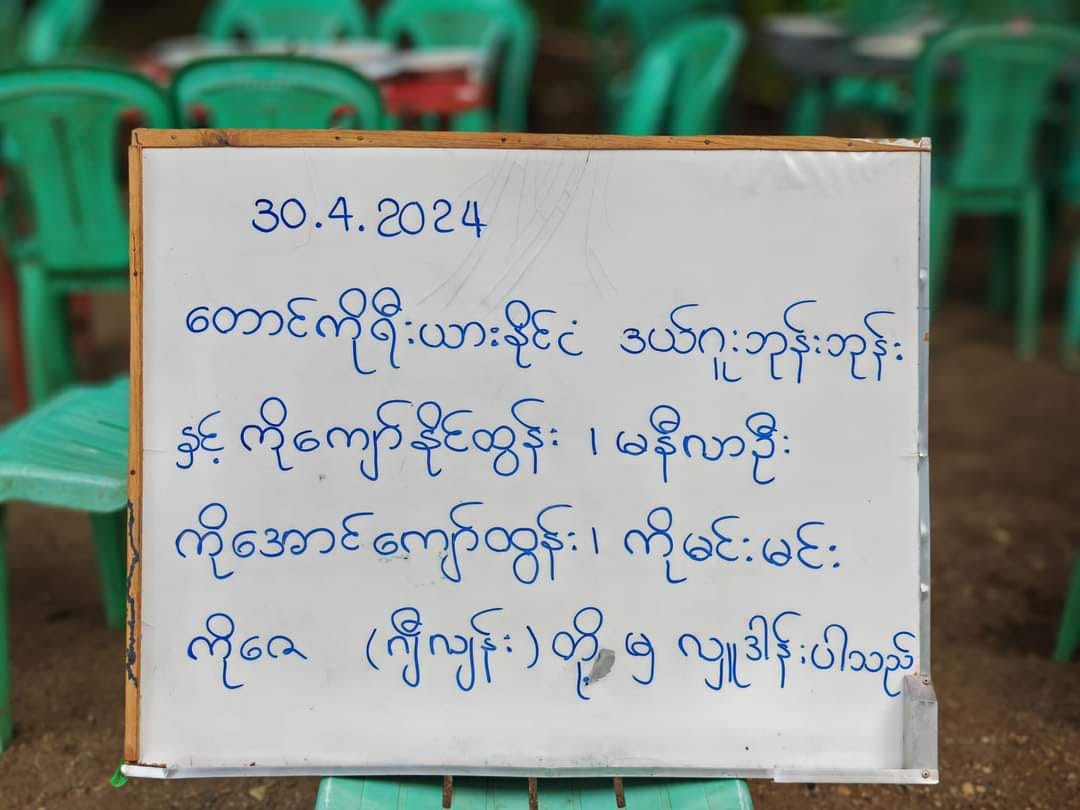 30.4.2024
တောင်ကိုရီးယားနိုင်ငံ ဒယ်ဂူးဘုန်းဘုန်း
နှင့် ကိုကျော်နိုင်ထွန်း ၊ မနီလာဦး
ကိုအောင်ကျော်ထွန်း ၊ ကိုမင်းမင်း
ကိုဇေ (ဂျီလျန်း) တို့ မှ လှူဒါန်းပါသည်